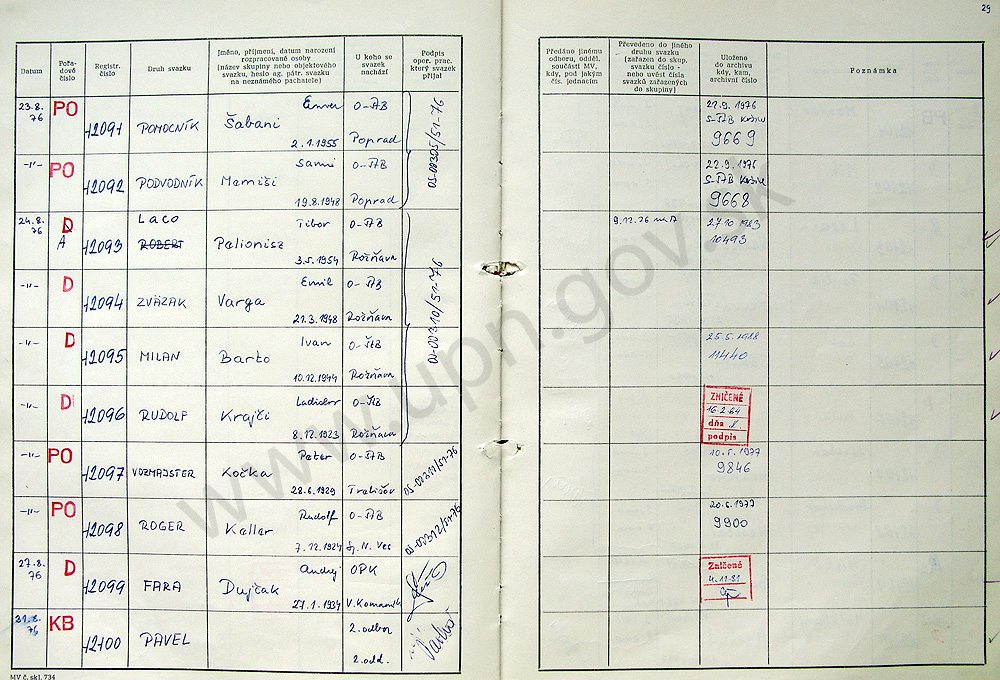 29
Datum
Pořa-
dové
číslo
Registr.
číslo
Druh svazku
Jméno, příjmení, datum narození
rozpracované osoby
(název skupiny nebo objektového
svazku, heslo ag. pátr. svazku
na neznámého pachatele)
U koho se
svazek
nachází
Podpis
oper. prac.
který svazek
přijal
Předáno jinému
odboru, odděl.
součásti MV,
kdy, pod jakým
čís. jednacím
Převedeno do jiného
druhu svazku
(zařazen do skup.
svazku číslo -
nebo uvést čísla
svazků zařazených
do skupiny)
Uloženo
do archivu
kdy, kam,
archivní číslo
Poznámka
23.8.
76
PO
12091
POMOCNÍK
Enver
Šabani
2.1.1955
O-ŠtB
Poprad
OS-00305/51-76
27.9.1976
9669
-"-
PO
12092
PODVODNÍK
Sami
Memiši
19.8.1948
O-ŠtB
Poprad
22.9.1976
9668
24.8.
76
D
A
12093
LACO
ROBERT
Tibor
Palionisz
3.5.1954
O-ŠtB
Rožňava
OS-00310/51-76
9.12.76
27.10.1983
10493
-"-
D
12094
ZVÄZAK
Emil
Varga
21.3.1948
O-ŠtB
Rožňava
-"-
D
12095
MILAN
Ivan
Barto
10.12.1944
O-ŠtB
Rožňava
25.5.1988
11440
-"-
D
12096
RUDOLF
Ladislav
Krajči
8.12.1923
O-ŠtB
Rožňava
ZNIČENÉ
dňa
podpis
-"-
PO
12097
VOZMAJSTER
Peter
Kočka
28.6.1929
O-ŠtB
OS-00311/51-76
10.5.1977
9846
-"-
PO
12098
ROGER
Rudolf
Keller
7.12.1924
O-ŠtB
Sp. N. Ves
OS-00312/51-76
20.6.1977
9900
27.8.
76
D
12099
FARA
Andrej
Dujčak
27.1.1934
OPK
V. Komarník
Zničené
4.11.81
31.8.
76
KB
12100
PAVEL
2. odbor
2. odd.
MV č. skl. 734
www.upn.gov.sk